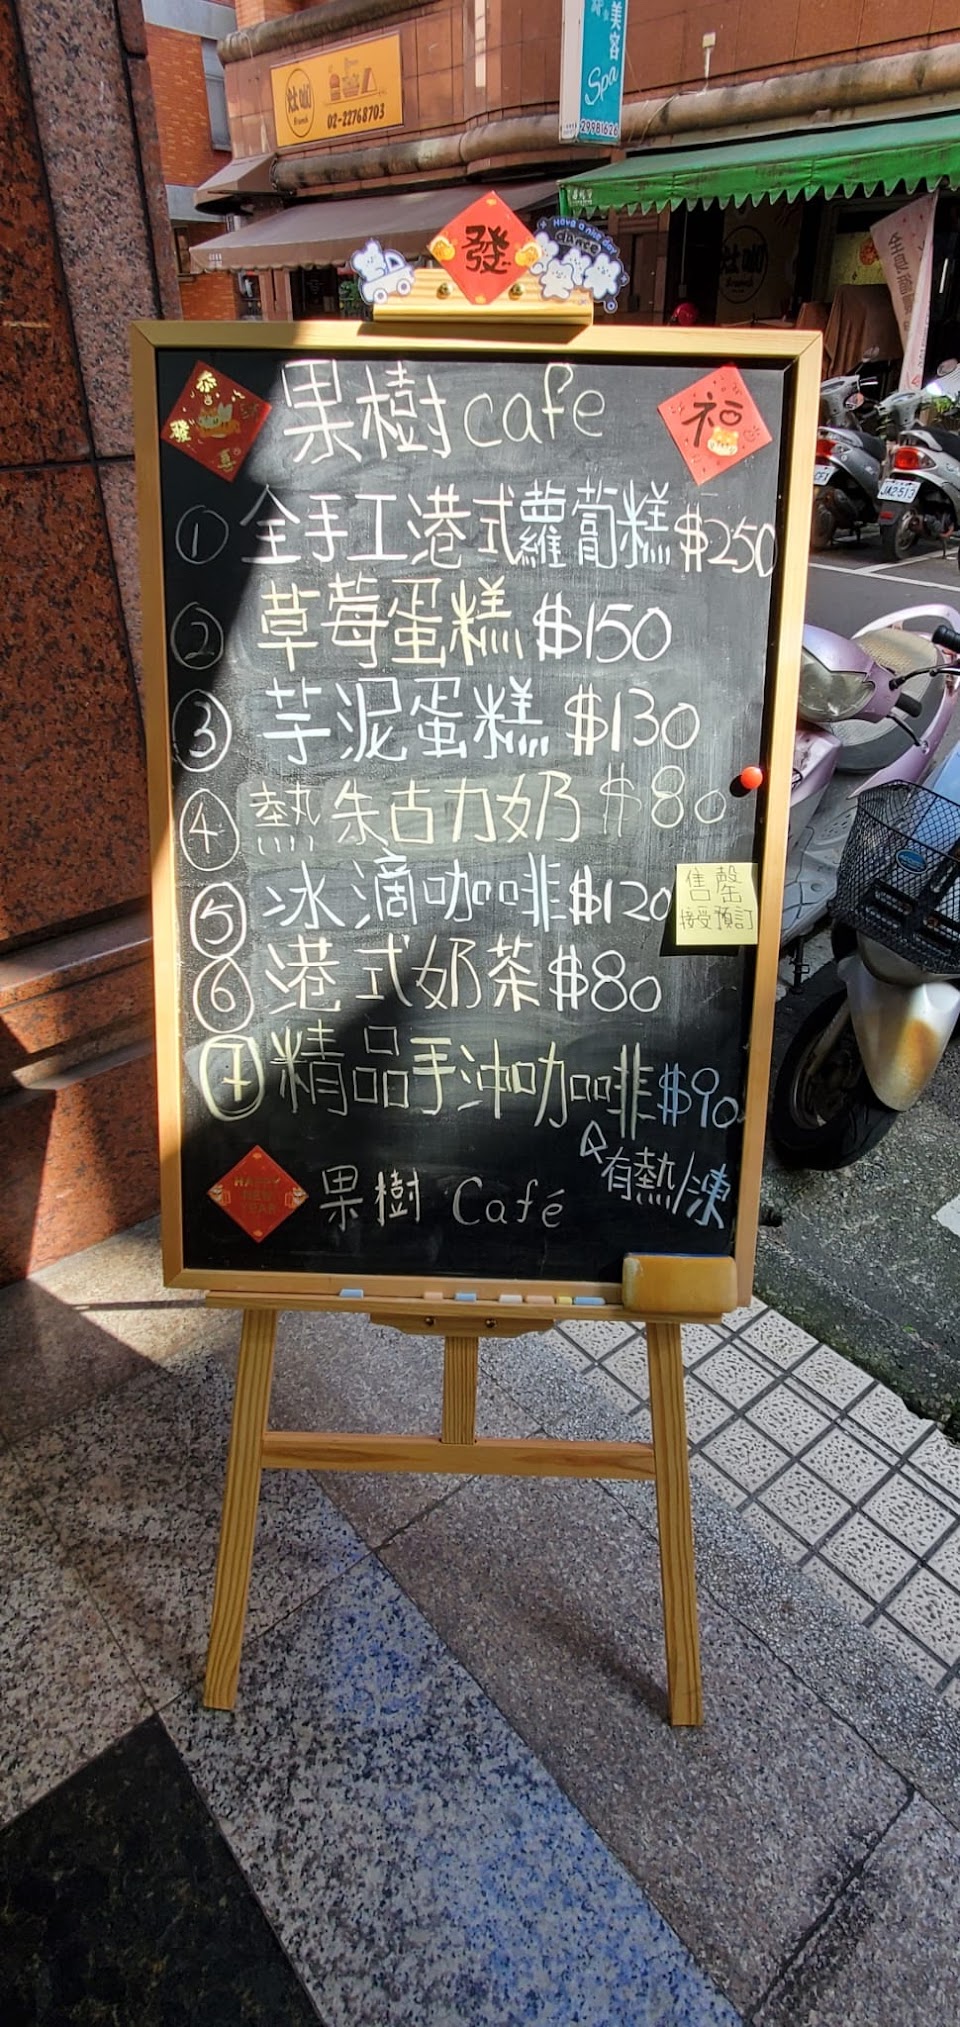 美容
Spa
29981626
灶咖
Brunch
02-22768703
Have a nice day
dance
發
恭
喜
發
福
果樹cafe
① 全手工港式蘿蔔糕$250
② 草莓蛋糕$150
③ 芋泥蛋糕$130
④ 熱朱古力奶$80
⑤ 冰滴咖啡$120
售罄
接受預訂
⑥ 港式奶茶$80
⑦ 精品手沖咖啡$90
有熱/凍
HAPPY
NEW
YEAR
果樹 Café
灶咖
JAZ-513